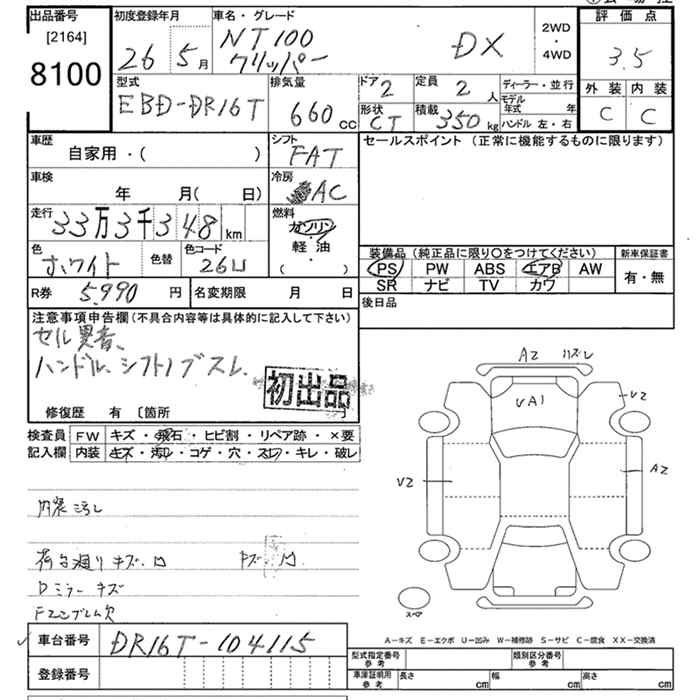 出品番号
[2164]
8100
初度登録年月
26 5月
車名・グレード
NT100
クリッパー
DX
2WD
・
4WD
評価点
3.5
外装 内装
C C
型式
EBD-DR16T
排気量
660cc
ドア
2
定員
2人
ディーラー・並行
形状
CT
積載
350kg
モデル年式 年
ハンドル 左・右
車歴
自家用・( )
シフト
FAT
セールスポイント (正常に機能するものに限ります)
車検
年 月( 日)
冷房
AC
走行
33万3千348km
燃料
ガソリン
軽・油
・
( )
色
ホワイト
色替
色コード
26U
装備品 (純正品に限り○をつけてください)
PS PW ABS エアB AW
SR ナビ TV カワ
新車保証書
有・無
R券 5,990円
名変期限 月 日
後日品
注意事項申告欄(不具合内容等は具体的に記入して下さい)
セル異音、
ハンドル、シフトノブスレ、
初出品
修復歴 有 〔箇所 〕
検査員
記入欄
FW キズ・飛石・ヒビ割・リペア跡・×要
内装 キズ・汚レ・コゲ・穴・スレ・キレ・破レ
内装汚レ
荷台廻りキズ、凹
Dミラーキズ
Fエンブレム欠
A2 スレ
VA1
V2
V2
A2
スペア
A-キズ E-エクボ U-凹み W-補修跡 S-サビ C-腐食 XX-交換済
車台番号
DR16T-104115
登録番号
型式指定番号
参考
類別区分番号
参考
車庫証明用
参考
長さ cm
幅 cm
高さ cm